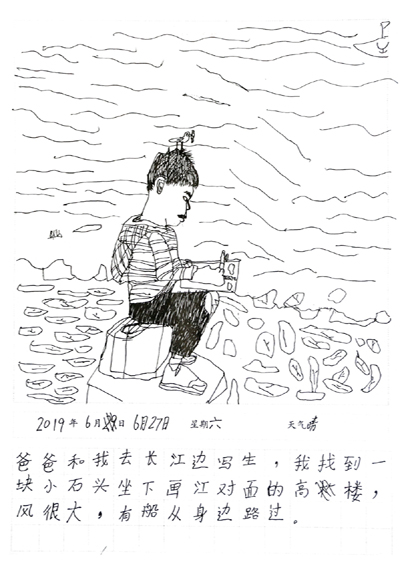 2019年6月日6月27日 星期六 天气晴
爸爸和我去长江边写生，我找到一
块小石头坐下画江对面的高楼，
风很大，有船从身边路过。